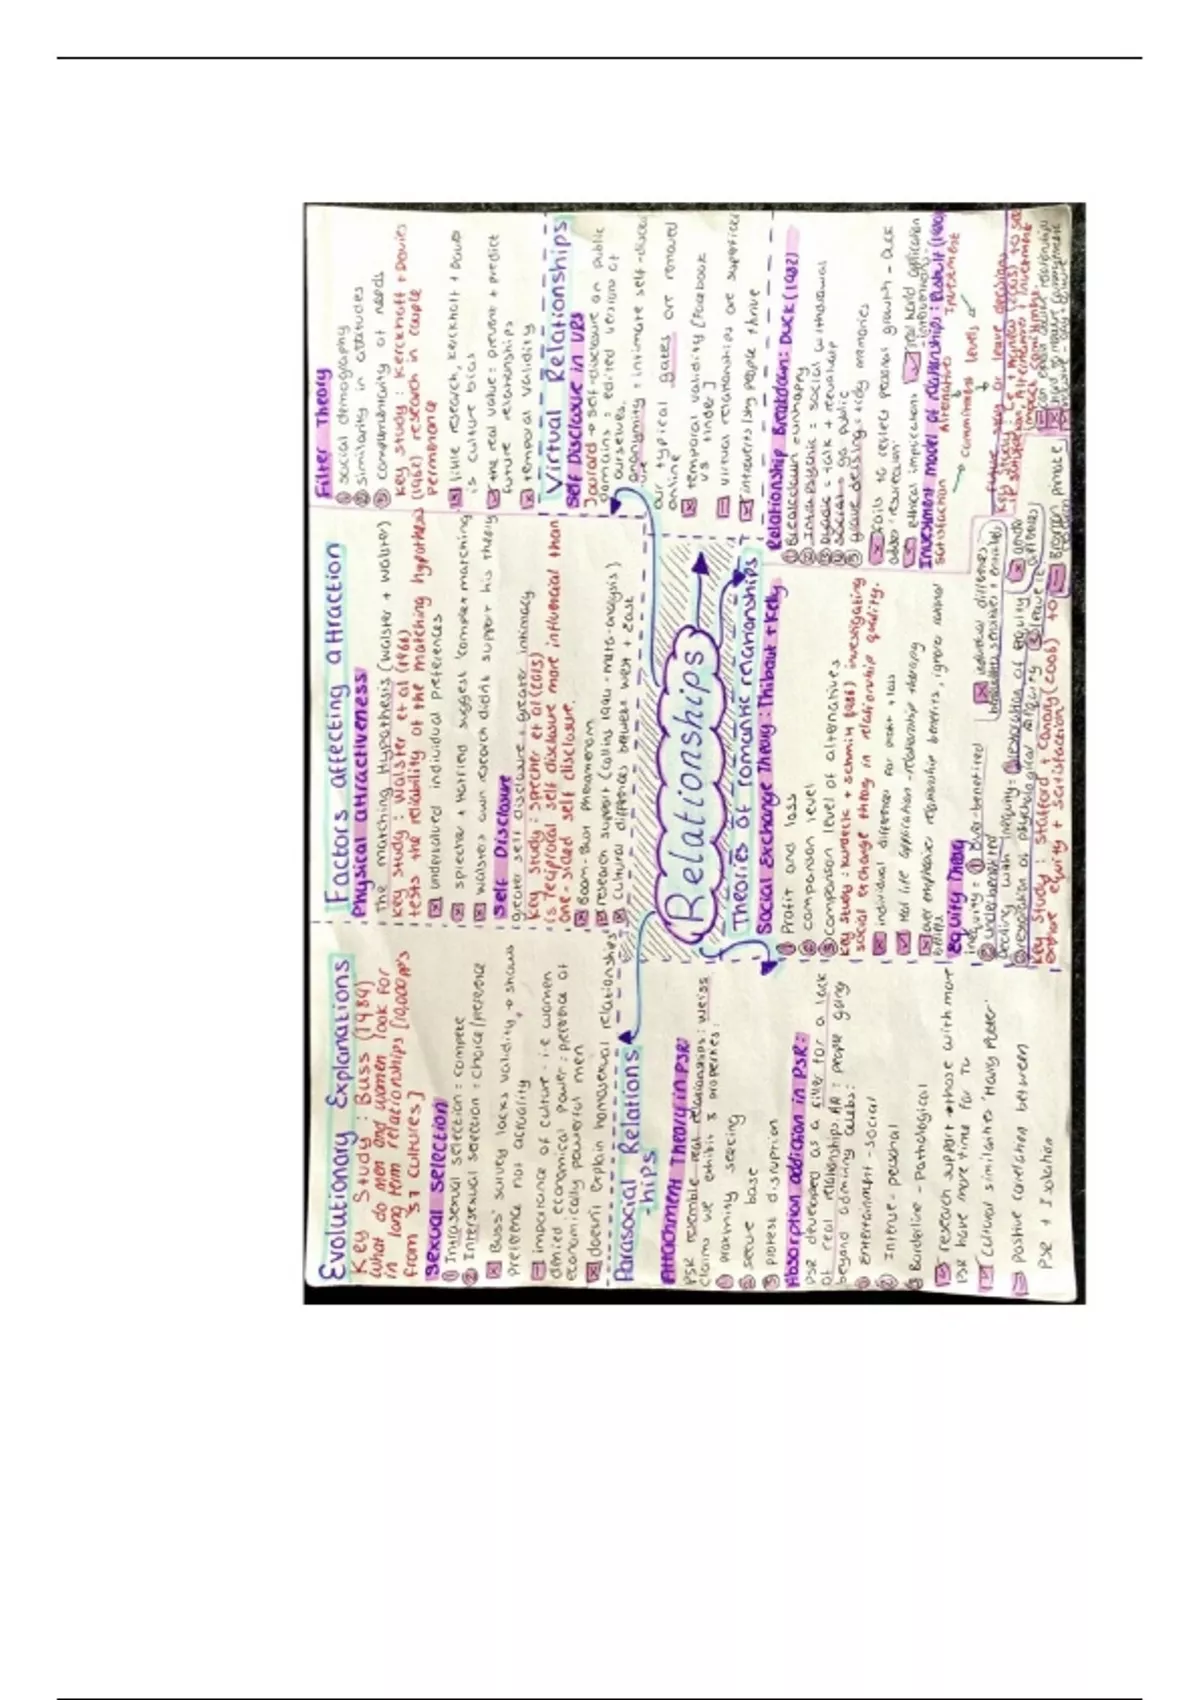 Evolutionary Explanations
Key Study: Buss (1989)
what do men and women look for
in long term relationships [10,000 pp's
from 37 cultures]
Sexual Selection
① Intrasexual selection = compete
② Intersexual selection = choice/preference
Buss' survey lacks validity → shows
preference not actuality
importance of culture: i.e women
denied economical power = preference of
economically powerful men
doesn't explain homosexual relationships
Factors affecting attraction
Physical attractiveness
The matching Hypothesis (walster + walster)
Key study: walster et al (1966)
tests the reliability of the matching hypothesis
undervalued individual preferences
sprecher + Hatfield suggest 'complex matching'
walsters own research didn't support his theory
Self Disclosure
greater self disclosure = greater intimacy
Key study: Sprecher et al (2013)
is reciprocal self disclosure more influential than
one-sided self disclosure.
Boom-Bust phenomenom
research support (Collins 1994 - meta-analysis)
Cultural differences between west + East
Filter Theory
① social demography
② similarity in attitudes
③ complementarity of needs
Key study: Kerckhoff + Davies
(1962) research in couple
permenance
little research, Kerckhoff + Davies
is culture bias
the real value = prevent + predict
future relationships
temporal validity
Virtual Relationships
Self Disclosure in VRs
Jourard → self-disclosure on public
domains = edited versions of
ourselves.
anonymity = intimate self-disclosure
our typical gates are removed
online
temporal validity [Facebook
vs tinder]
virtual relationships are superficial
introverts/shy people thrive
Relationships
Parasocial Relations
-hips
Attachment Theory in PSR
PSR resemble real relationships: Weiss
claims we exhibit 3 properties:
① proximity seeking
② secure base
③ protest disruption
Absorption addiction in PSR:
PSR developed as a filler for a lack
of real relationships. AA: people going
beyond admiring celebs:
① entertainment - social
② Intense - personal
③ Borderline - Pathological
research support → those with more
PSR have more time for TV
Cultural similarities 'Harry Potter'
positive correlation between
PSR + isolation
Theories of romantic relationships
Social Exchange Theory: Thibaut + Kelly
① Profit and loss
② comparison level
③ comparison level of alternatives
Key study: Kurdeck + Schmitt (1986) investigating
social exchange theory in relationship quality.
individual differences for profit + loss
real life application - relationship therapy
over emphasises relationship benefits, ignore rational
beliefs
Equity Theory
inequity = ① over-benefitted
② underbenefitted
dealing with inequity = ① restoration of equity
② restoration of psychological equity ③ leave it
Key study: Stafford + Canary (2006) to
explore equity + satisfaction
individual differences
gender
differences
Relationship Breakdown: Duck (1982)
① Breakdown = unhappy
② Intra psychic = social withdrawal
③ Dyadic = talk + reevaluate
④ social = go public
⑤ grave dressing = tidy memories
Fails to reflect personal growth - Duck
added 'resurection'
ethical implications
real world application
Investment model of relationships: Rusbult (1980)
satisfaction
Alternatives
Investment
commitment levels
future stay or leave decisions